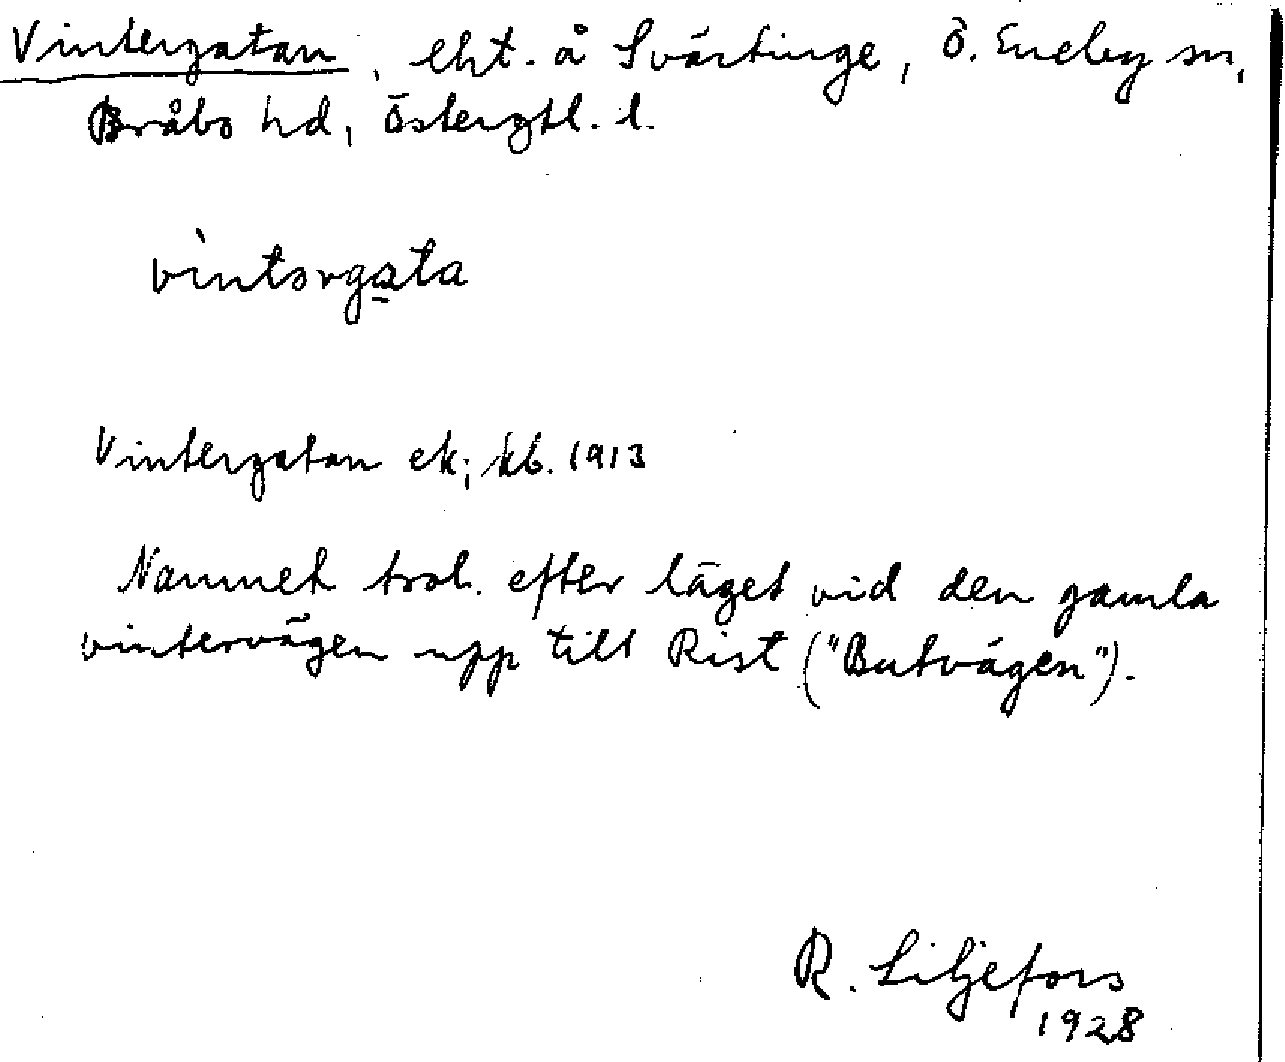 Vintergatan, lht. å Svärtinge, Ö. Eneby sn,
Bråbo hd, Östergtl. l.
vìntərgata
Vintergatan ek; kb. 1913
Namnet trol. efter läget vid den gamla
vintervägen upp till Rist ("Butvägen").
R. Liljefors
1928